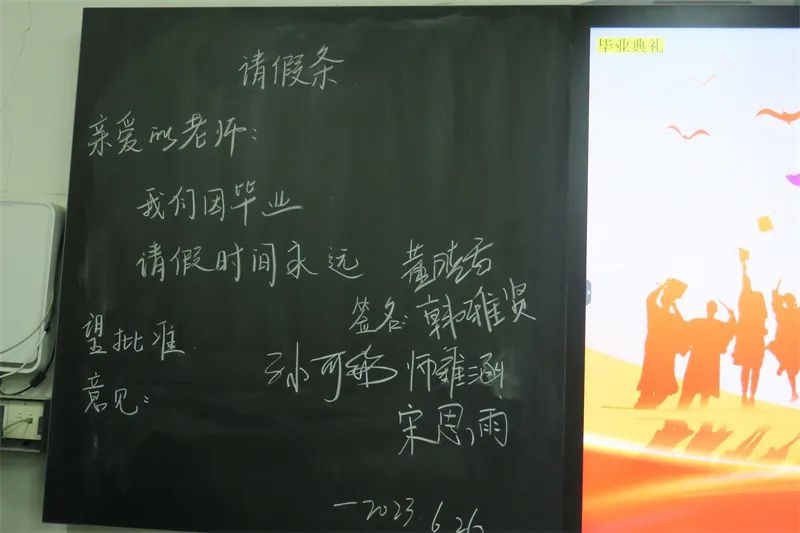 请假条
亲爱的老师：
我们因毕业
请假时间永远
望批准
签名：韩雅贤
师雅涵
意见：
宋思雨
2023.6.26
毕业典礼